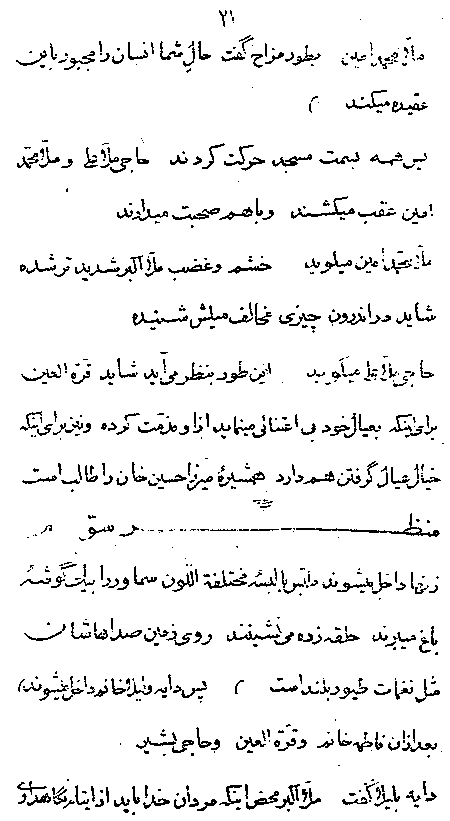 ٢١
ملا محمد امین بطور مزاح گفت حال شما انسان را مجبور باین
عقیده میکند )
پس همه بسمت مسجد حرکت کردند حاجی ملا علی و ملا محمد
امین عقب میکشند و با هم صحبت میدارند
ملا محمد امین میگوید خشم و غضب ملا اکبر شدید تر شده
شاید در اندرون چیزی مخالف میلش شنیده
حاجی ملا علی میگوید این طور بنظر می آید شاید قرة العین
برای اینکه بعیال خود بی اعتنائی مینماید از او مذمت کرده و نیز برای اینکه
خیال عیال گرفتن هم دارد همشیرۀ میرزا حسین خان را طالب است
منظر سوم
زنها داخل میشوند با البسۀ مختلفة اللون سماور را بیک گوشۀ
باغ میبرند حلقه زده می نشینند روی زمین صداهاشان
مثل نغمات طیور بلند است ) پس دایه و لیلا خانم داخل میشوند )
بعد از آن فاطمه خانم و قرة العین و حاجی بشیر
دایه بلیلا گفت ملا اکبر محض اینکه مردان خدا باید از